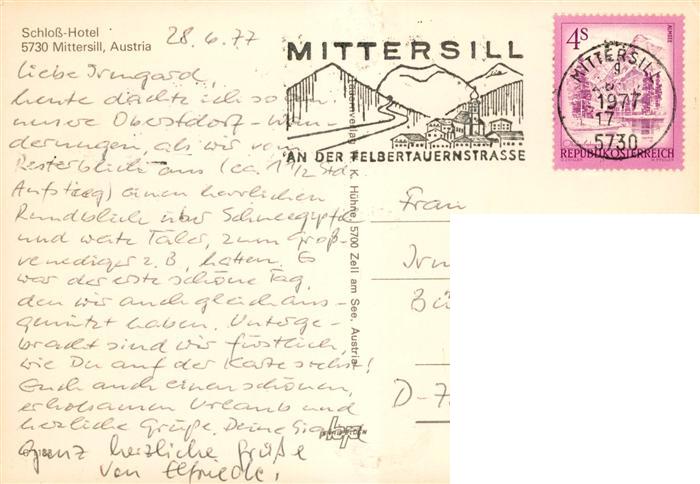 Schloß-Hotel
5730 Mittersill, Austria
28.6.77
Liebe Irmgard,
heute dachte ich so an
unsere Oberstdorf-Wan-
derungen, als wir vom
Resterblick aus (ca. 1 1/2 Std.
Aufstieg) einen herrlichen
Rundblick über Schneegipfel
und weite Täler, zum Groß-
venediger z.B. hatten. Es
war der erste schöne Tag,
den wir auch gleich aus-
genützt haben. Unterge-
bracht sind wir fürstlich,
wie Du auf der Karte siehst!
Euch auch einen schönen,
erholsamen Urlaub und
herzliche Grüße, Deine
Ganz herzliche Grüße
von Elfriede.
MITTERSILL
AN DER FELBERTAUERNSTRASSE
K. Hühne, 5700 Zell am See, Austria
4S
ALMSEE
REPUBLIK ÖSTERREICH
MITTERSILL
1977
17
5730
Frau
Irm
Bü
D-7